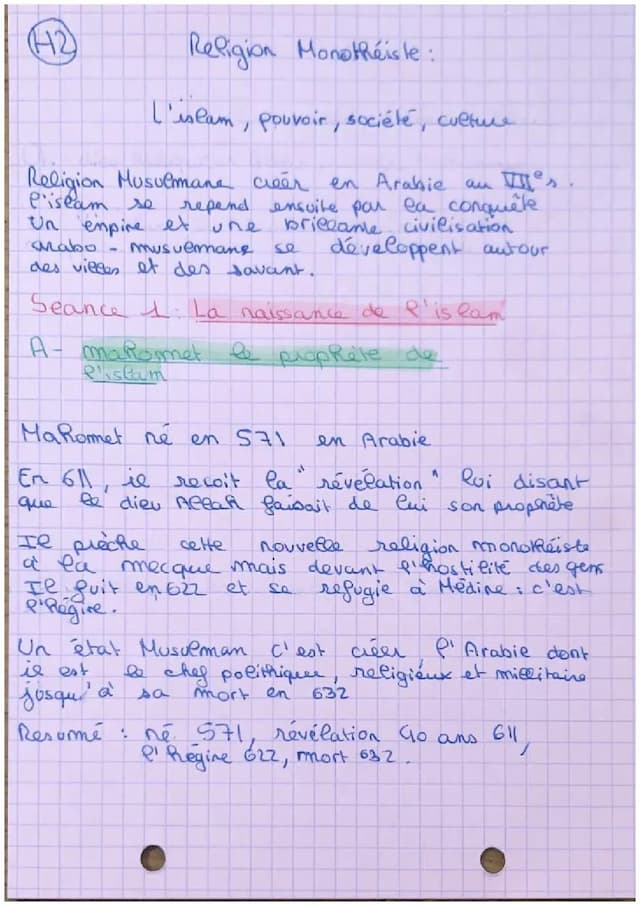 H2
Religion Monothéiste :
L'islam, pouvoir, société, culture
Religion Musulmane créér en Arabie au VIIe s.
l'islam se repend ensuite par la conquête
Un empire et une brillante civilisation
arabo-musulmane se développent autour
des villes et des savant.
Seance 1: La naissance de l'islam
A- mahomet le prophète de
l'islam
Mahomet né en 571 en Arabie
En 611, il recoit la "révélation" lui disant
que le dieu Allah faisait de lui son prophète
Il prêche cette nouvelle religion monothéiste
à la mecque mais devant l'hostilité des gens
Il fuit en 622 et se refugie à Médine : c'est
l'Hégire.
Un état Musulman c'est créer, l'Arabie dont
il est le chef polithique, religieux et millitaire
jusqu'à sa mort en 632
Resumé : né 571, révélation 40 ans 611,
l'Hégire 622, mort 632.